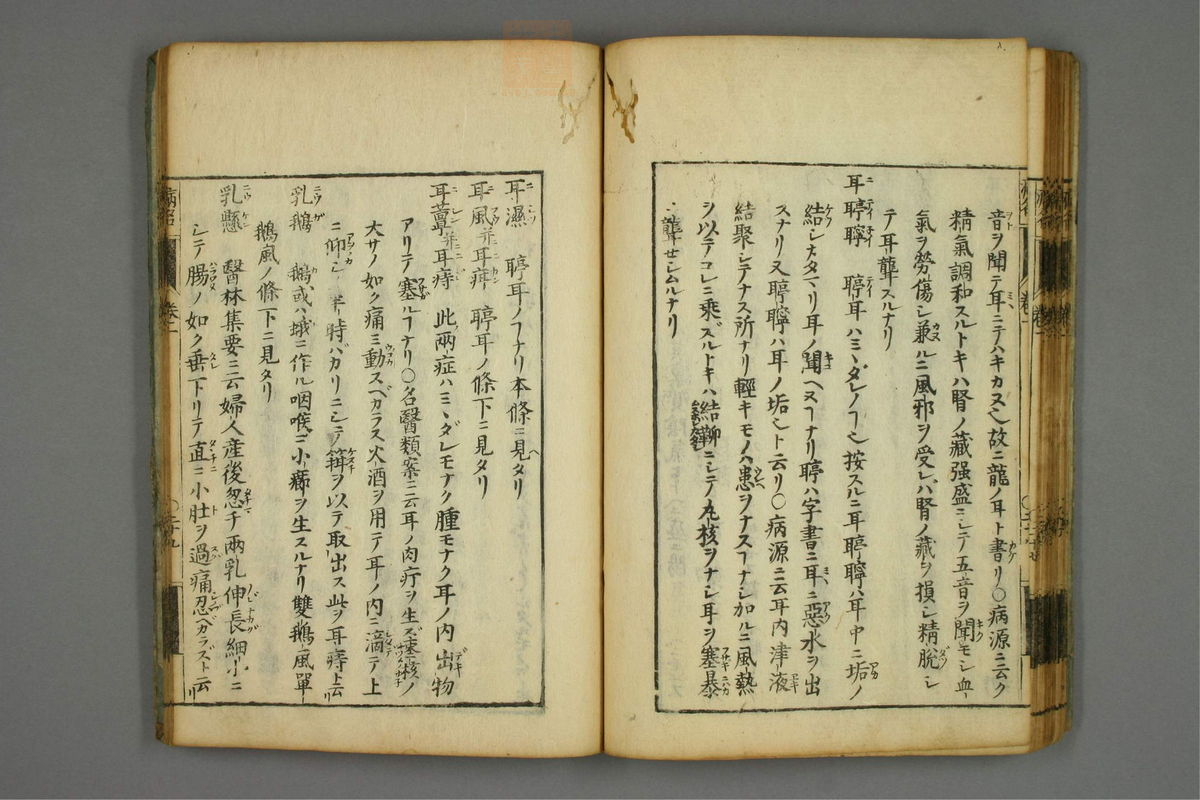 音ヲ聞テ耳ニテハキカス故ニ龍ノ耳ト書リ〇病源ニ云ク
精氣調和スルトキハ腎ノ藏强盛ニシテ五音ヲ聞モシ血
氣ヲ勞傷シ兼ルニ風邪ヲ受レバ腎ノ藏ヲ損シ精脫シ
テ耳聾スルナリ
耳聤聹 聤耳ハミヽダレノヿ也按スルニ耳聤聹ハ耳中ニ垢ノ
結シカタマリ耳ノ聞ヘヌヿナリ聤ハ字書ニ耳ニ惡水ヲ出
スナリ又聤聹ハ耳ノ垢也ト云リ〇病源ニ云耳内津液
結聚シテナス所ナリ輕キモノハ患ヲナスヿナシ加ルニ風熱
ヲ以テコレニ乘ズルトキハ結鞕ニシテ丸核ヲナシ耳ヲ塞暴
ニ聾セシムルナリ
耳濕 聤耳ノヿナリ本條ニ見タリ
耳風并耳疳 聤耳ノ條下ニ見タリ
耳蕈并耳痔 此兩症ハミヽダレモナク腫モナク耳ノ内出物
アリテ塞ルヿナリ〇名醫類案ニ云耳ノ肉疔ヲ生ズ棗核ノ
大サノ如ク痛ミ動スベカラス火酒ヲ用テ耳ノ内ニ滴テ上
ニ仰シ半時バカリニシテ箝ヲ以テ取出ス此ヲ耳痔ト云リ
乳鵝 鵝或ハ蛾ニ作ル咽喉ニ小癤ヲ生スルナリ雙鵝風單
鵝風ノ條下ニ見タリ
乳懸 醫林集要ニ云婦人産後忽チ兩乳伸長細小ニ
シテ腸ノ如ク垂下リテ直ニ小肚ヲ過痛忍ベガラズト云リ